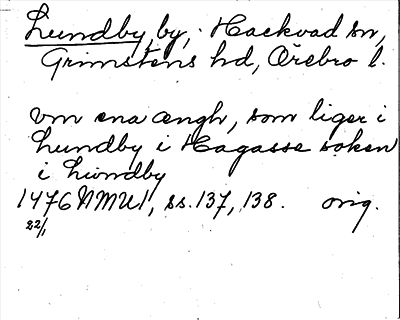 Lundby, by, Hackvad sn,
Grimstens hd, Örebro l.
vm ena ængh, som liger i
Lundby i Hagasse soken
i Lundby
1476 NMU1, ss. 137, 138. orig.
22/1